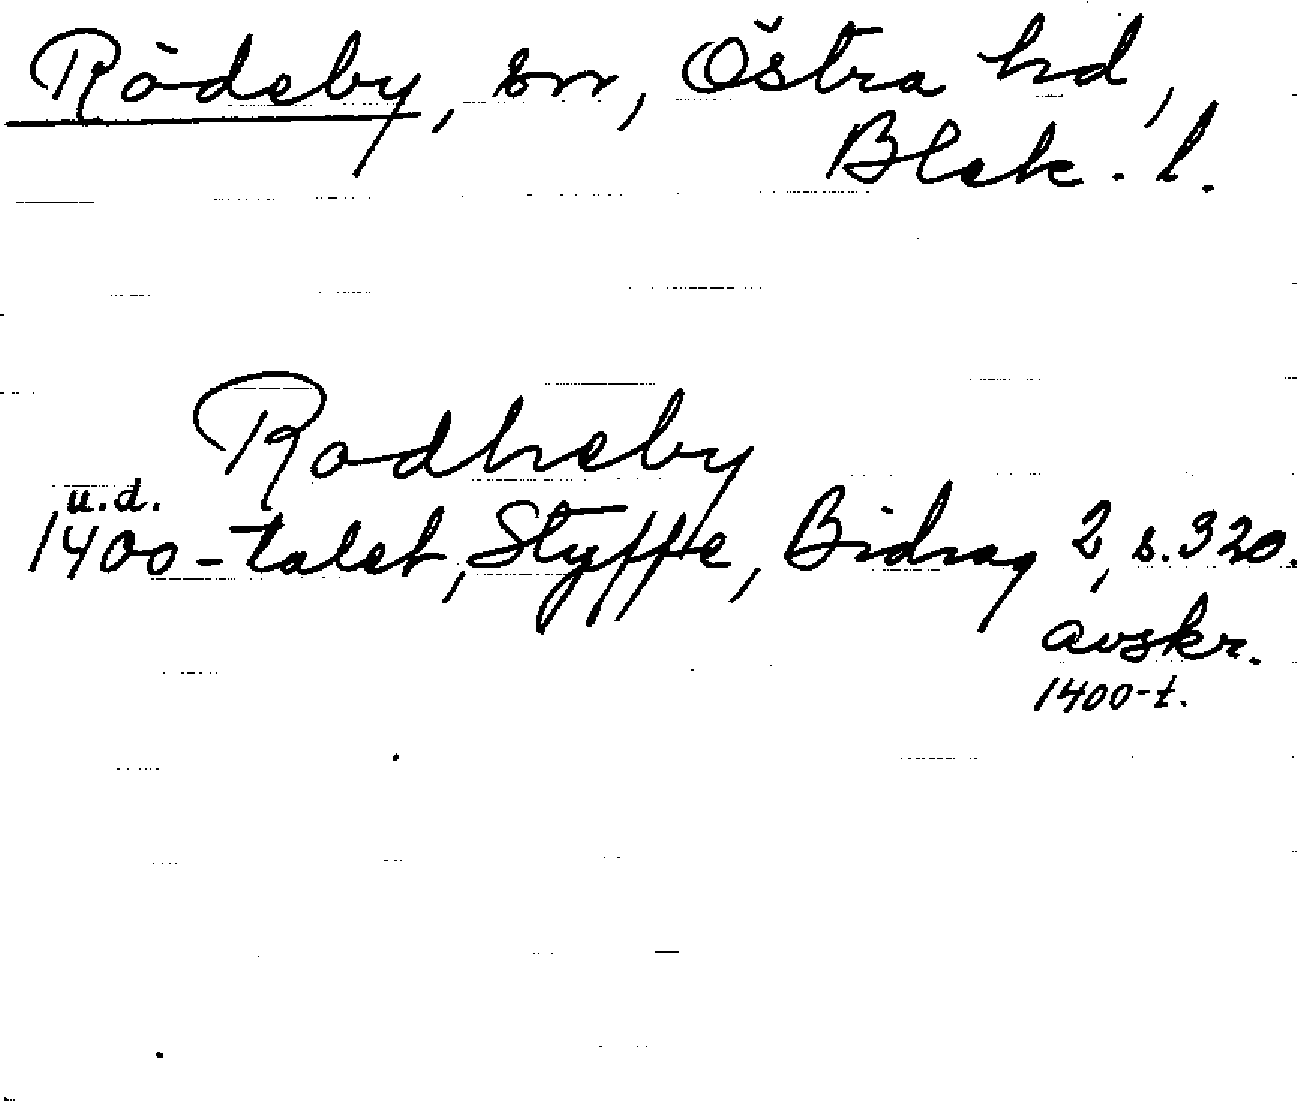 Rödeby, sn, Östra hd,
Blek. l.
Rodheby
u.d.
1400-talet, Styffe, Bidrag 2, s. 320.
avskr.
1400-t.